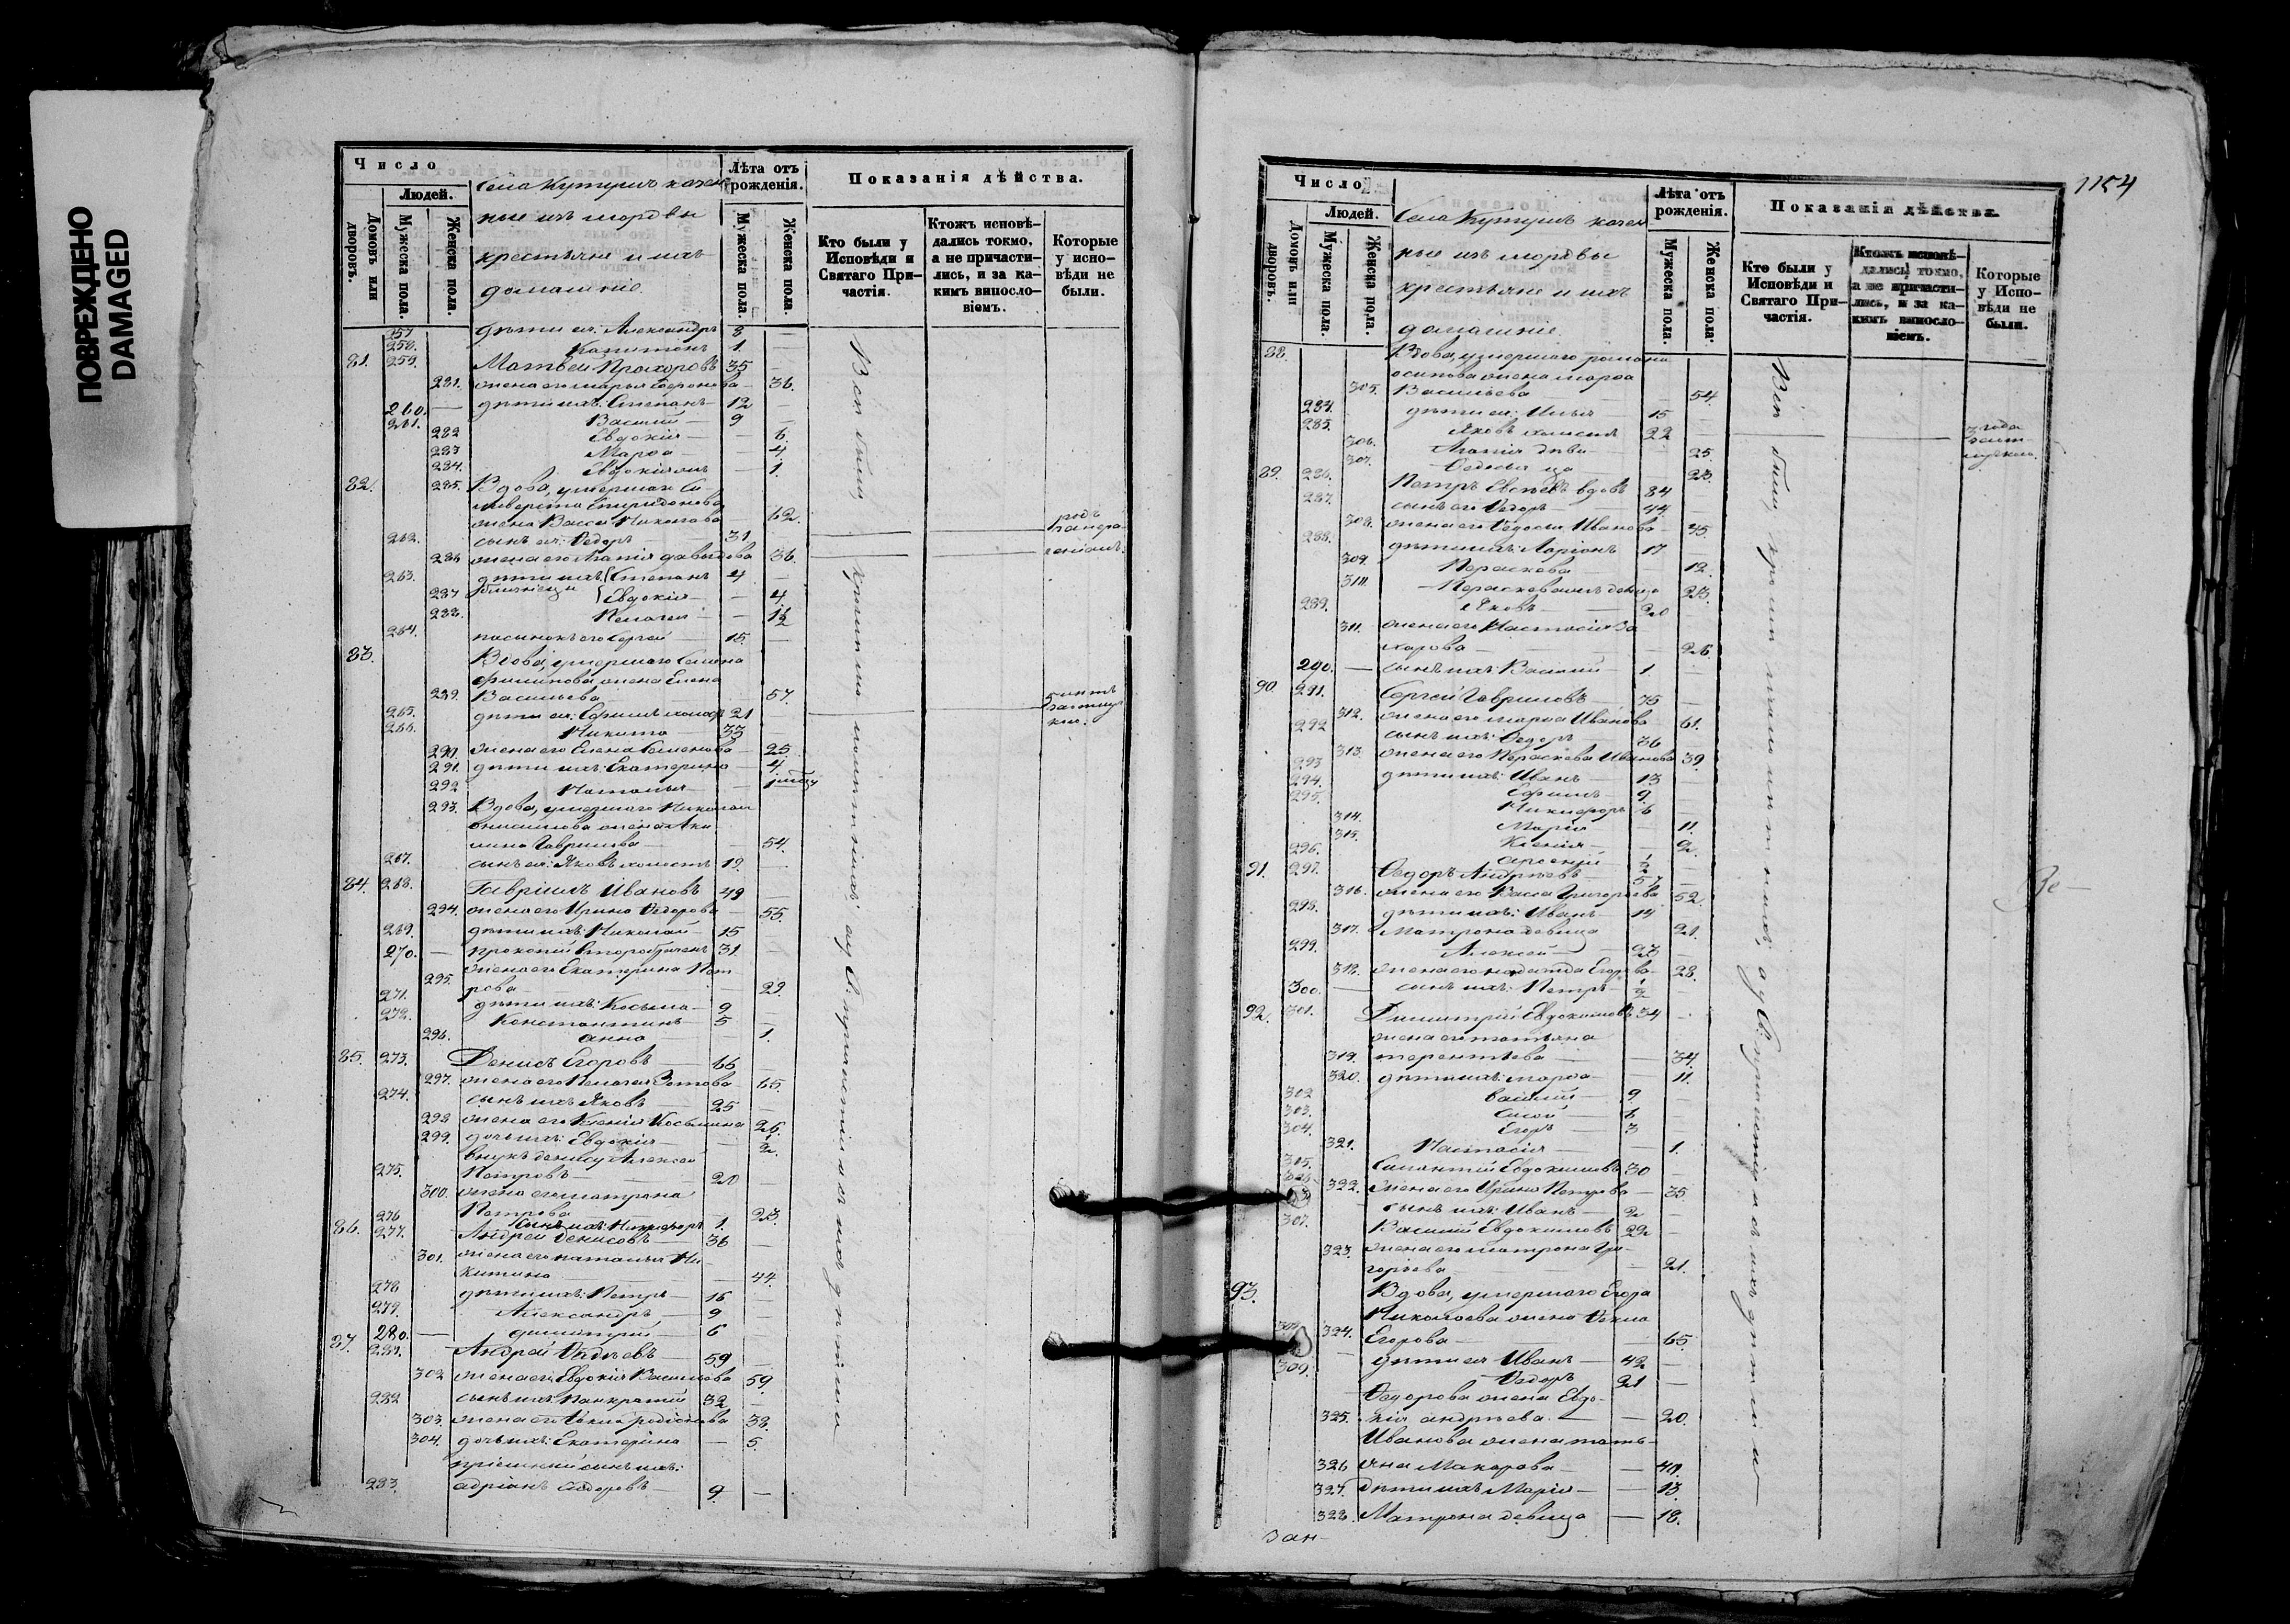 ПОВРЕЖДЕНО
DAMAGED
Число
Людей.
Домовъ или дворовъ.
Мужеска пола.
Женска пола.
Села Кутушъ казен
ные изъ мордвы
крестьяне и ихъ
домашніе.
Лѣта отъ рожденія.
Мужеска пола.
Женска пола.
Показанія дѣйства.
Кто были у Исповѣди и Святаго Причастія.
Ктожъ исповѣдались токмо, а не причастились, и за какимъ винословіемъ.
Которые у исповѣди не были.
257 дѣти ея: Александръ 8 —
258. Капитонъ 1. —
81. 259. Матвей Прохоровъ 35 —
281. жена его Марья Софронова — 36.
260. — дѣти ихъ: Степанъ — 12 —
261. Василій — 9 —
282 Евдокія — — 6.
283 Марѳа — — 4.
284. Евдокія — 1.
82. 285. Вдова, умершаго Си
ливерста Спиридонова
жена Васса Николаева — 62.
262. сынъ ея: Ѳедоръ — 31
286 жена его Агапія Давыдова 36.
263. дѣти ихъ: Степанъ 4 —
близнецы
287 Евдокія — — 4
288. Пелагея — — 1½
264. пасынокъ его Сергей — 15. —
83. Вдова, умершаго Семена
Филипова жена Елена
289. Васильева — 57.
265. дѣти ея: Ефимъ холост 21
266. Никита — 33
290. жена его Елена Семенова — 25.
291. дѣти ихъ: Екатерина — 4.
292 Наталья — —
293. Вдова, умершаго Николая
Онисимова жена Аки
лина Гаврилова — — 54.
267. сынъ ея: Яковъ холостъ 19. —
84. 268. Гавріилъ Ивановъ 49 —
294. жена его Ирина Ѳедорова — 55.
269. дѣти ихъ: Николай — 15 —
270. — Прокопій второбраченъ 31. —
жена его Екатерина Пет
295. рова — — 29.
271. дѣти ихъ: Косьма — 9 —
272. Константинъ — 5 —
296. Анна — — 1.
85. 273. Денисъ Егоровъ — 66 —
297. жена его Пелагея Зотова 65.
274. сынъ ихъ Яковъ — 25 —
298 жена его Ксенія Косьмина 26.
299. дочь ихъ: Евдокія — ½.
внукъ Денису Алексей
275. Петровъ — 20 —
300. жена его Матрона
Петрова — 23.
276 сынъ ихъ: Никифоръ 1. —
86. 277. Андрей Денисовъ — 36 —
301. жена его Наталья Ни
китина — 44.
278 дѣти ихъ: Петръ — 16 —
279. Александръ — 9 —
280. — Димитрій — 6 —
87. 281. Андрей — 59 —
302 жена его Евдокія Васильева 59.
282 сынъ ихъ: Панкратій 32 —
303. жена его Ѳекла Родіонова 38.
304. дочь ихъ: Екатерина — 5.
пріемный сынъ ихъ:
283. Адріанъ Сидоровъ — 9. —
Всѣ были, кромѣ малолѣтнихъ, а у Св. причастія и съ ихъ дѣтьми
1154
Число
Людей.
Домовъ или дворовъ.
Мужеска пола.
Женска пола.
Села Кутушъ казен
ные изъ мордвы
крестьяне и ихъ
домашніе.
Лѣта отъ рожденія.
Мужеска пола.
Женска пола.
Показанія дѣйства.
Кто были у Исповѣди и Святаго Причастія.
Ктожъ исповѣдались токмо, а не причастились, и за какимъ винословіемъ.
Которые у Исповѣди не были.
88. Вдова, умершаго Романа
Осипова жена Марѳа
305. Васильева — — 54.
284. дѣти ея: Илья 15 —
285. Яковъ холостъ 22 —
306. Агапія дѣва — 25.
307. — 23.
89. 286. Петръ вдовъ 84 —
287. сынъ его Ѳедоръ — 44. —
308. жена его Ѳедосья Иванова — 45.
288. дѣти ихъ: Ларіонъ 17 —
309. Параскева — — 12.
310. Параскева девица 23.
289. Яковъ — 20
311. жена его Настасія За
харова — — 26
290. — сынъ ихъ: Василій — 1 —
90. 291. Сергей Гавриловъ — 75 —
312. жена его Марѳа Иванова 61.
292 сынъ ихъ: Ѳедоръ — 36 —
313. жена его Параскева Иванова 39.
293 дѣти ихъ: Иванъ — 13 —
294. Ефимъ — 9. —
295. Никифоръ 6 —
314. Марія — 11.
315. Ксенія — — 2.
296. Арсеній — ½ —
91. 297. Ѳедоръ Андреевъ — 57 —
316. жена его Васса Григорьева 52.
298. дѣти ихъ: Иванъ — 14 —
317. Матрона девица 21.
299. Алексей — 23 —
318. жена его Надежда Егорова — 28.
300. — сынъ ихъ: Петръ — ½ —
92. 301. Димитрій Евдокимовъ 34 —
жена его Татьяна
319. Терентьева — — 34.
320. дѣти ихъ: Марѳа — — 11.
302 Василій — 9. —
303. Сысой — 6 —
304. Егоръ — 3 —
321. Настасія — 1.
305. Евдокимовъ 30 —
322. жена его Ирина Петрова — 35.
306 сынъ ихъ: Иванъ — 2 —
307. Василій Евдокимовъ 22 —
323. жена его Матрона Гри
горьева — — 21.
93. Вдова, умершаго Егора
Николаева жена Ѳекла
324. Егорова — 65.
308 дѣти ея Иванъ — 42 —
309. Ѳедоръ 21 —
Ѳедорова жена Евдо
325. кія Андреева — — 20.
Иванова жена Тать
326 яна Макарова — — 40.
327. дѣти ихъ Марія — — 13.
328. Матрона девица — 18.
Всѣ были, кромѣ малолѣтнихъ, а у Св. причастія и съ ихъ дѣтьми